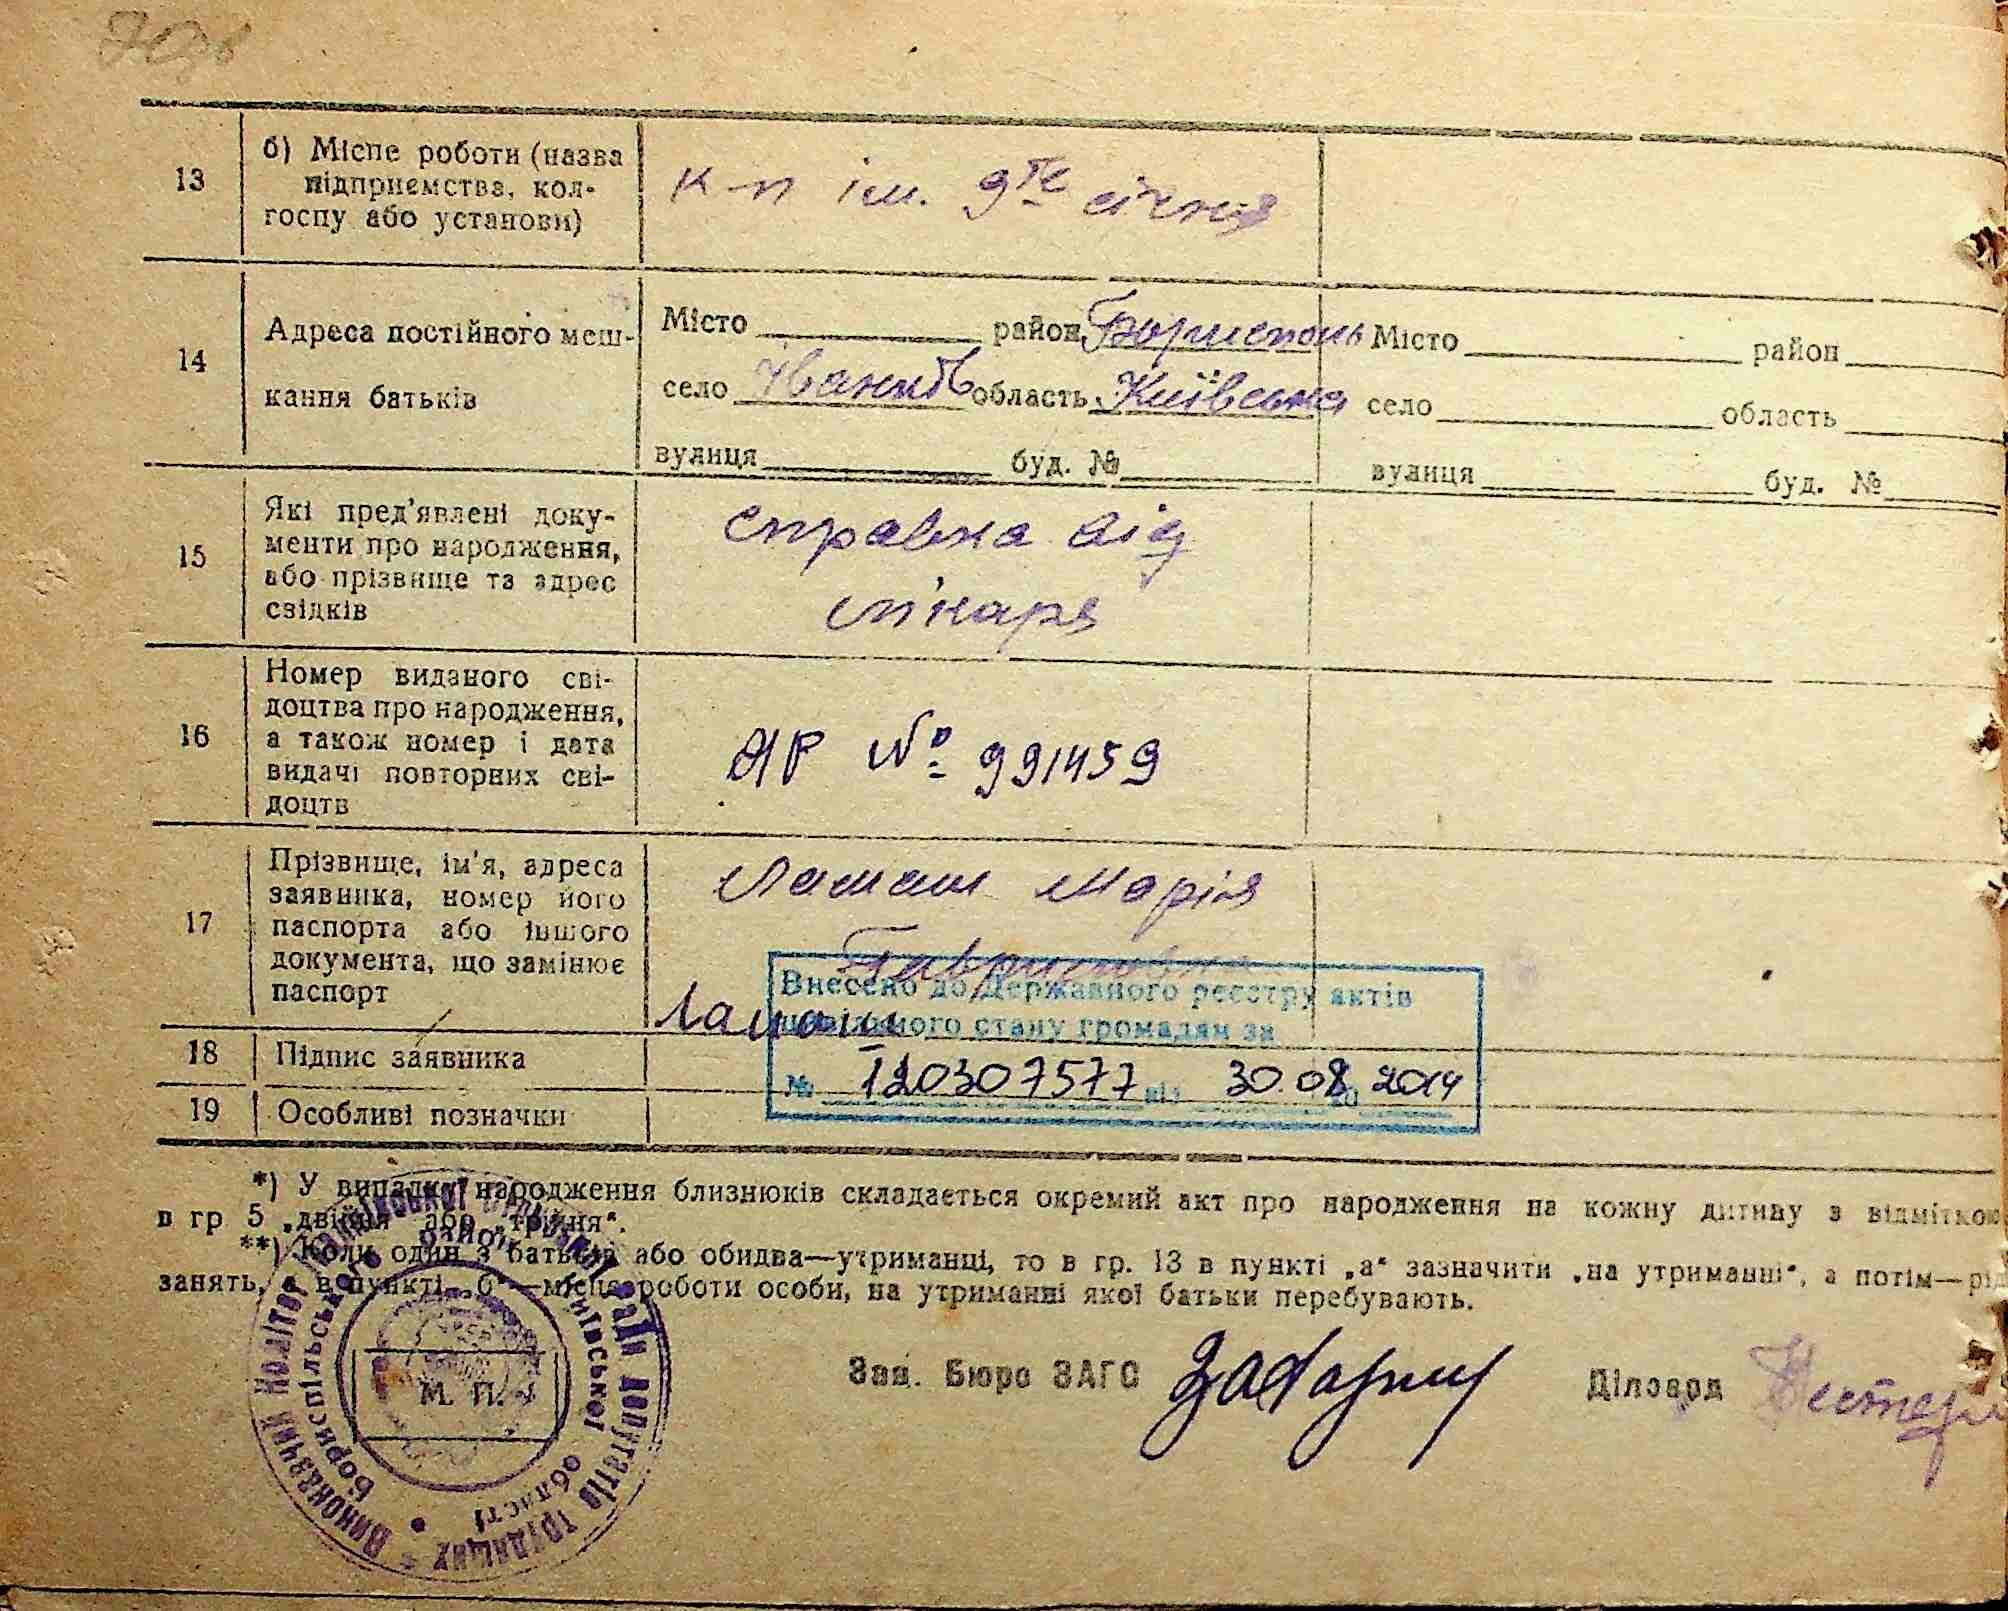 13
б) Місце роботи (назва
підприємства, кол-
госпу або установи)
к-п ім. 9те січня
14
Адреса постійного меш-
кання батьків
Місто район Бориспонь
село Іваньків область Київська
вулиця буд. №
Місто район
село область
вулиця буд. №
15
Які пред'явлені доку-
менти про народження,
або прізвище та адрес
свідків
справка від
лікаря
16
Номер виданого сві-
доцтва про народження,
а також номер і дата
видачі повторних сві-
доцтв
ЯР № 991459
17
Прізвище, ім'я, адреса
заявника, номер його
паспорта або іншого
документа, що замінює
паспорт
Ламаш Марія
Гавриловна
18
Підпис заявника
Ламаш
19
Особливі позначки
Внесено до Державного реєстру актів
цивільного стану громадян за
№ 120307577 від 30.08.2014
*) У випадку народження близнюків складається окремий акт про народження на кожну дитину з відміткою
в гр 5 „двійня або „трійня“.
**) Коли один з батьків або обидва—утриманці, то в гр. 13 в пункті „а“ зазначити „на утриманні“, а потім—рід
занять, а в пункті „б“—місце роботи особи, на утриманні якої батьки перебувають.
Зав. Бюро ЗАГС
Діловод
М. П.
Виконавчий Комітет Іваньківської сільської ради депутатів трудящих
Бориспільського району Київської області